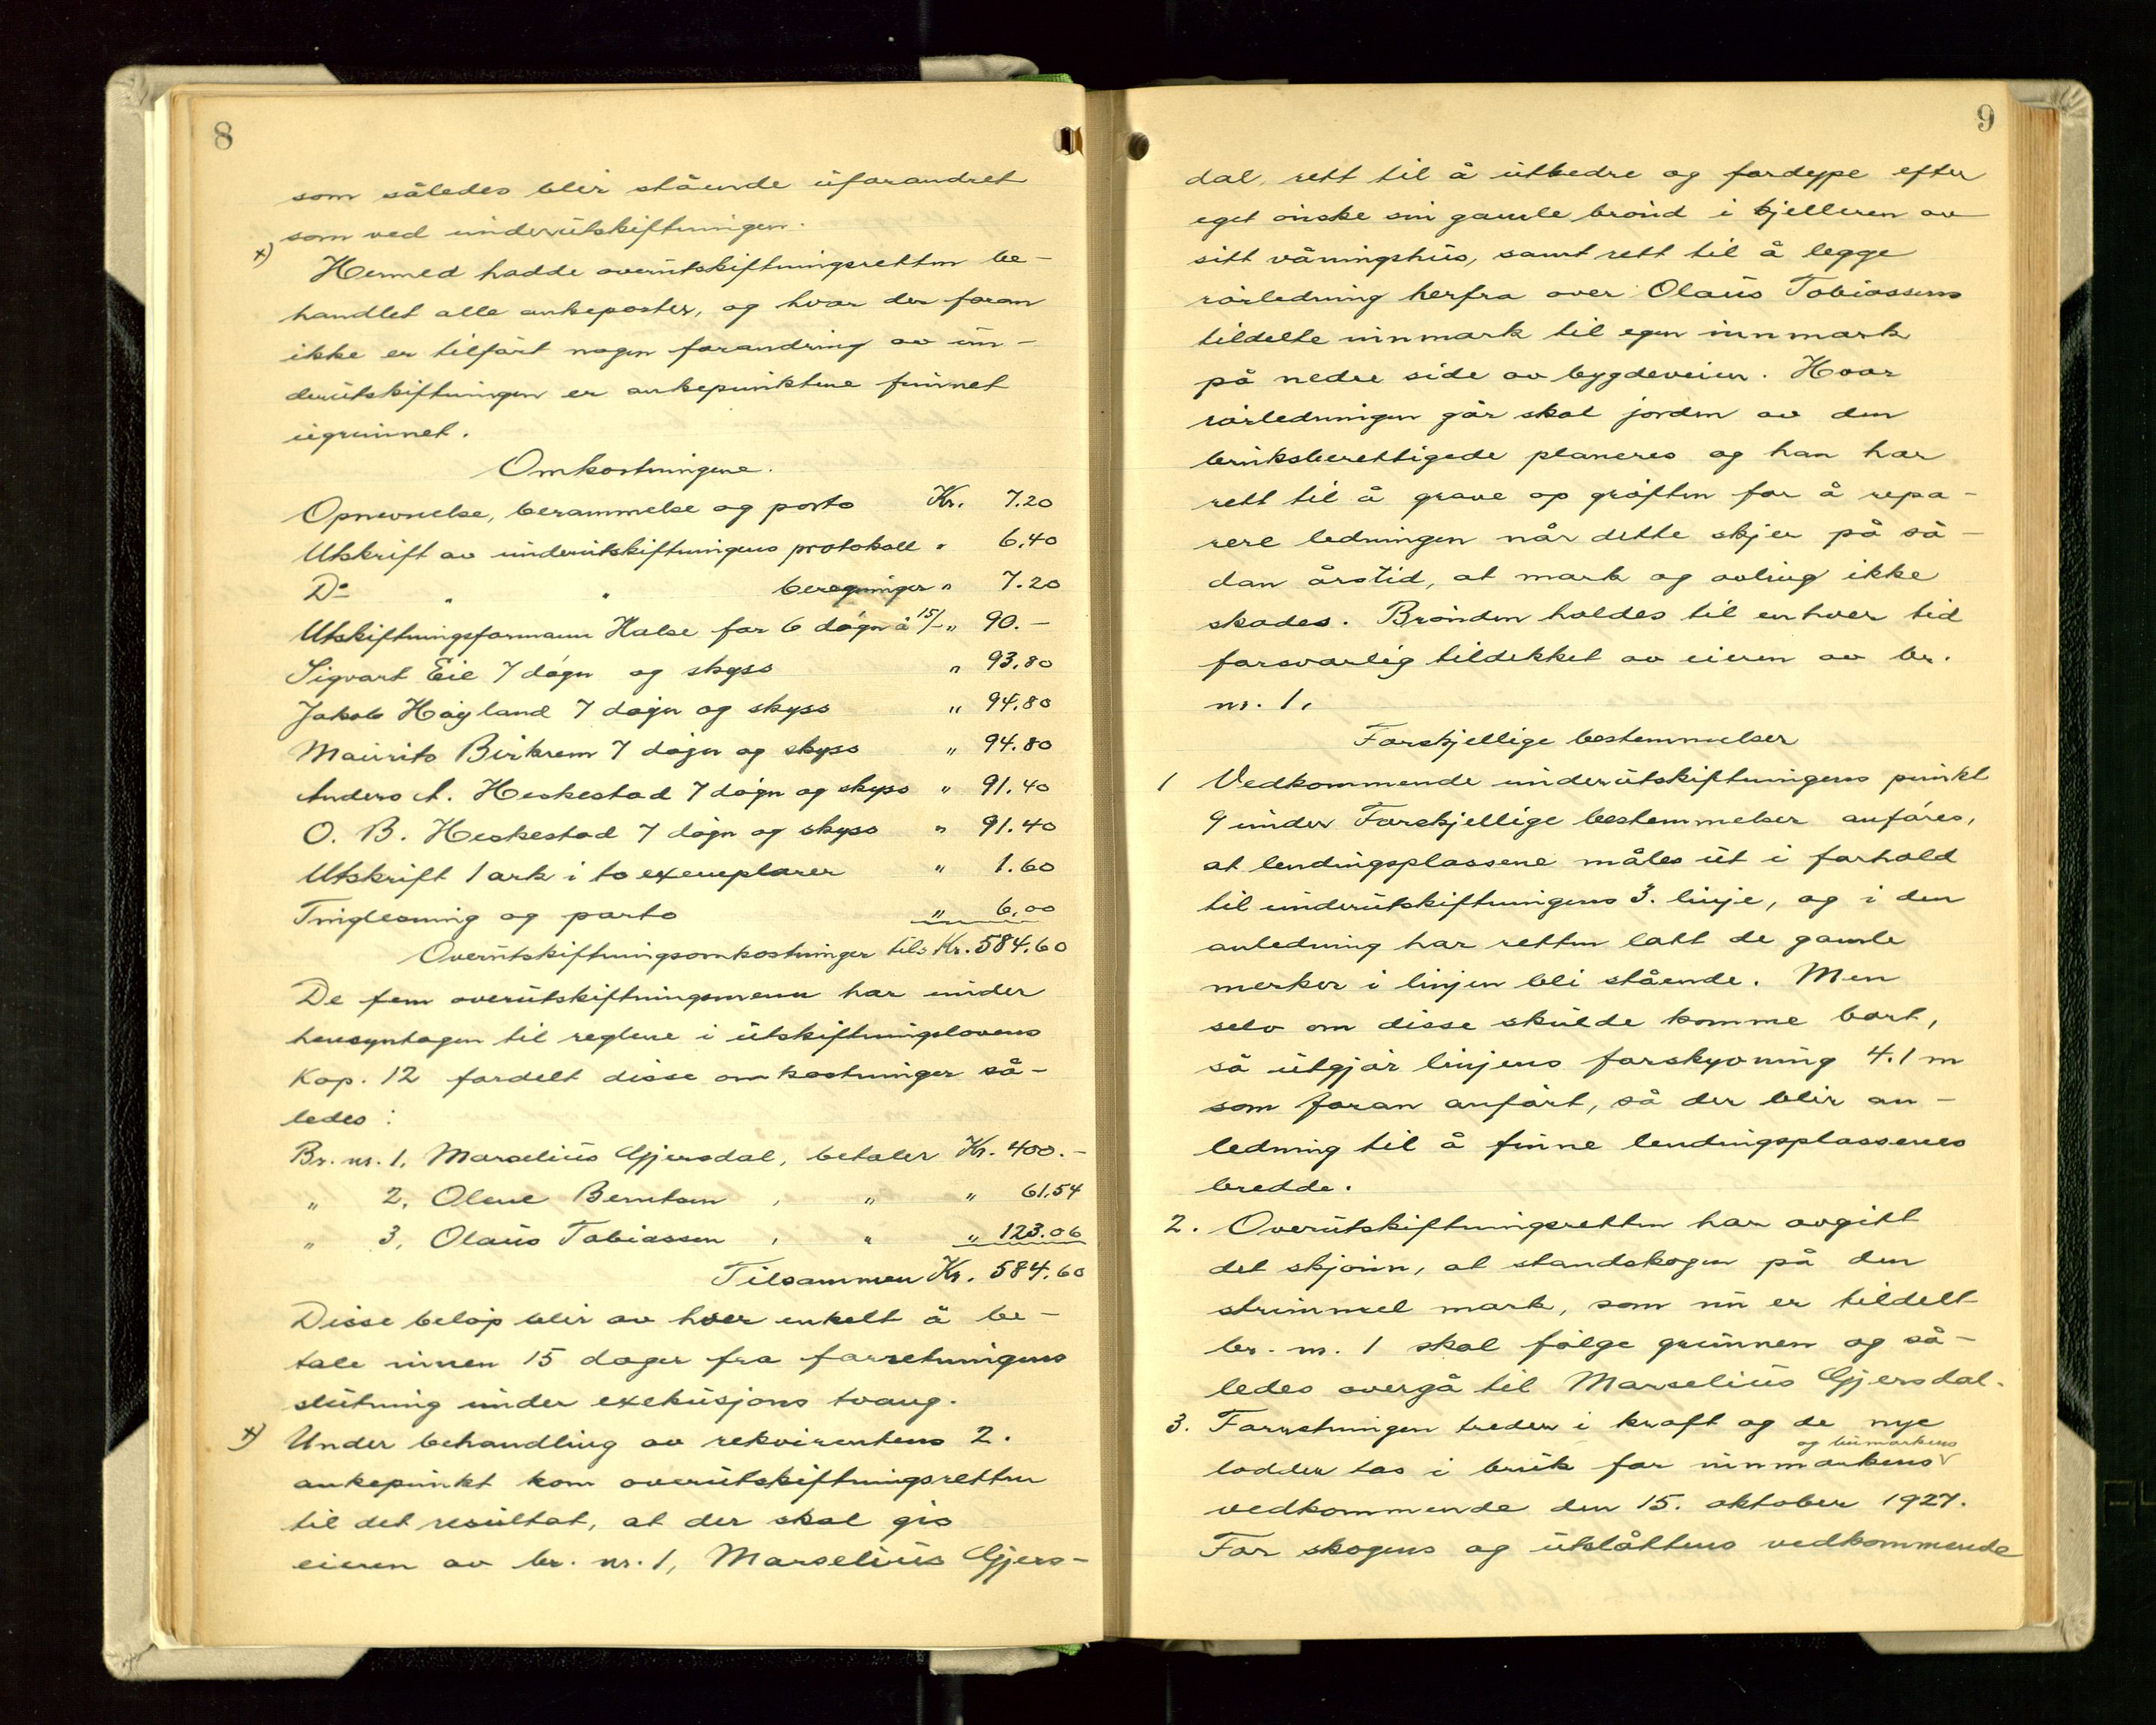 8
som således blir stående uforandret
som ved underutskiftningen.
x) Hermed hadde overutskiftningsretten be-
handlet alle ankeposter, og hvor der foran
ikke er tilført nogen forandring av un-
derutskiftningen er ankepunktene funnet
ugrunnet.
Omkostningene.
Opnevnelse, berammelse og porto Kr. 7.20
Utskrift av underutskiftningens protokoll " 6.40
Do " " beregninger " 7.20
Utskiftningsformann Halse for 6 døgn à 15/- " 90.-
Sigvart Eie 7 døgn og skyss " 93.80
Jakob Høyland 7 døgn og skyss " 94.80
Maurits Birkrem 7 døgn og skyss " 94.80
Anders A. Heskestad 7 døgn og skyss " 91.40
O. B. Heskestad 7 døgn og skyss " 91.40
Utskrift 1 ark i to exemplarer " 1.60
Tinglesning og porto " 6.00
Overutskiftningsomkostninger tils Kr. 584.60
De fem overutskiftningsmenn har under
hensyntagen til reglene i utskiftningslovens
Kap. 12 fordelt disse omkostninger så-
ledes:
Br. nr. 1, Marselius Gjersdal, betaler Kr. 400.-
" 2, Olene Berntsen , " " 61.54
" 3, Olaus Tobiassen , " " 123.06
Tilsammen Kr. 584.60
Disse beløp blir av hver enkelt å be-
tale innen 15 dager fra forretningens
slutning under exekusjons tvang.
x) Under behandling av rekvirentens 2.
ankepunkt kom overutskiftningsretten
til det resultat, at der skal gis
eieren av br. nr. 1, Marselius Gjers-
9
dal, rett til å utbedre og fordype efter
eget ønske sin gamle brønd i kjelleren av
sitt våningshus, samt rett til å legge
rørledning herfra over Olaus Tobiassens
tildelte innmark til egen innmark
på nedre side av bygdeveien. Hvor
rørledningen går skal jorden av den
bruksberettigede planeres og han har
rett til å grave op grøften for å repa-
rere ledningen når dette skjer på så-
dan årstid, at mark og avling ikke
skades. Brønden holdes til enhver tid
forsvarlig tildekket av eieren av br.
nr. 1.
Forskjellige bestemmelser
1 Vedkommende underutskiftningens punkt
9 under Forskjellige bestemmelser anføres,
at lendingsplassene måles ut i forhold
til underutskiftningens 3. linje, og i den
anledning har retten latt de gamle
merker i linjen bli stående. Men
selv om disse skulde komme bort,
så utgjør linjens forskyvning 4.1 m
som foran anført, så der blir an-
ledning til å finne lendingsplassenes
bredde.
2. Overutskiftningsretten har avgitt
det skjønn, at standskogen på den
strimmel mark, som nu er tildelt
br. nr. 1 skal følge grunnen og så-
ledes overgå til Marselius Gjersdal.
3. Forretningen treder i kraft og de nye
og bumarkens
lodder tas i bruk for innmarkens
vedkommende den 15. oktober 1927.
For skogens og utslåttens vedkommende